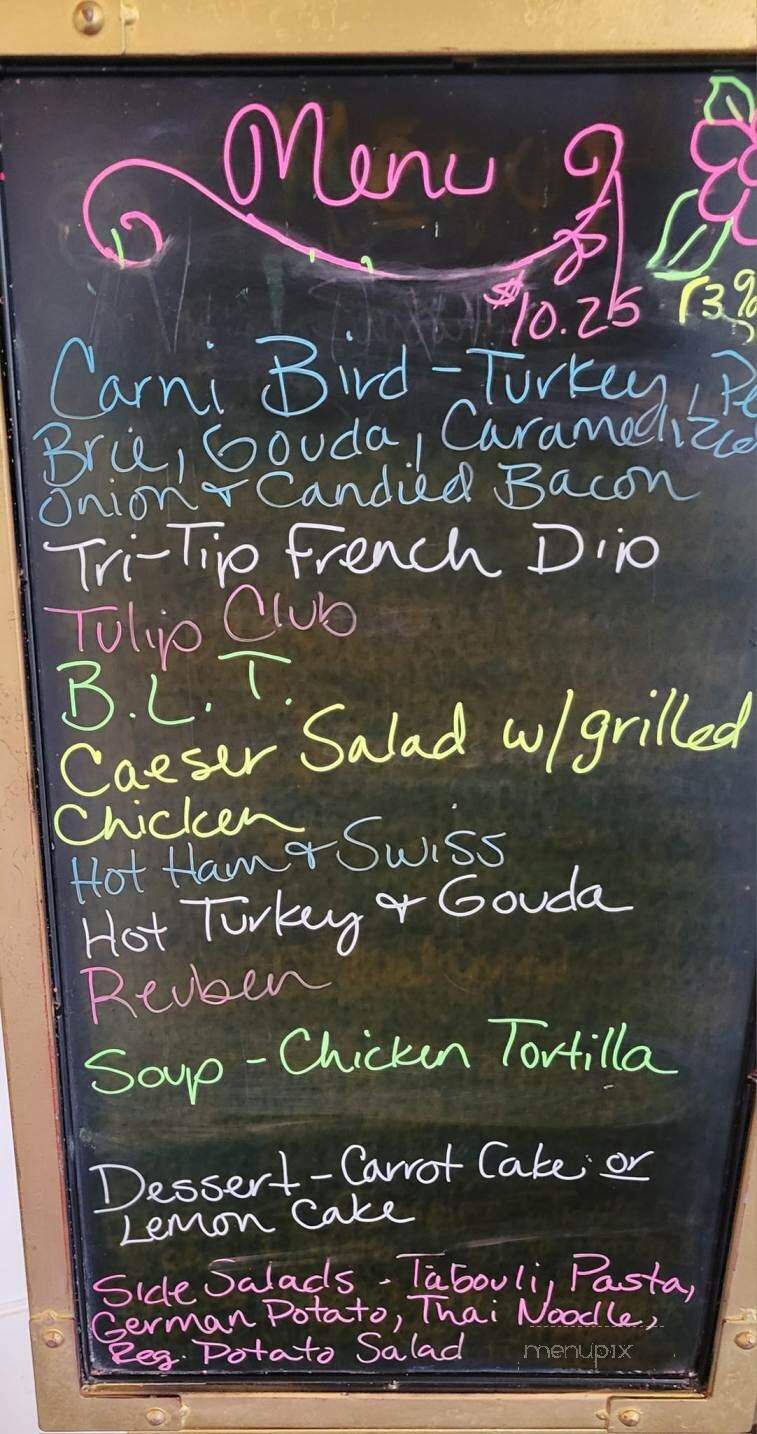 Menu
$10.25
3%
Carni Bird - Turkey,
Brie, Gouda, Caramelized
Onion & Candied Bacon
Tri-Tip French Dip
Tulip Club
B.L.T.
Caeser Salad w/grilled
Chicken
Hot Ham & Swiss
Hot Turkey & Gouda
Reuben
Soup - Chicken Tortilla
Dessert - Carrot Cake or
Lemon Cake
Side Salads - Tabouli, Pasta,
German Potato, Thai Noodle,
Reg. Potato Salad
menupix